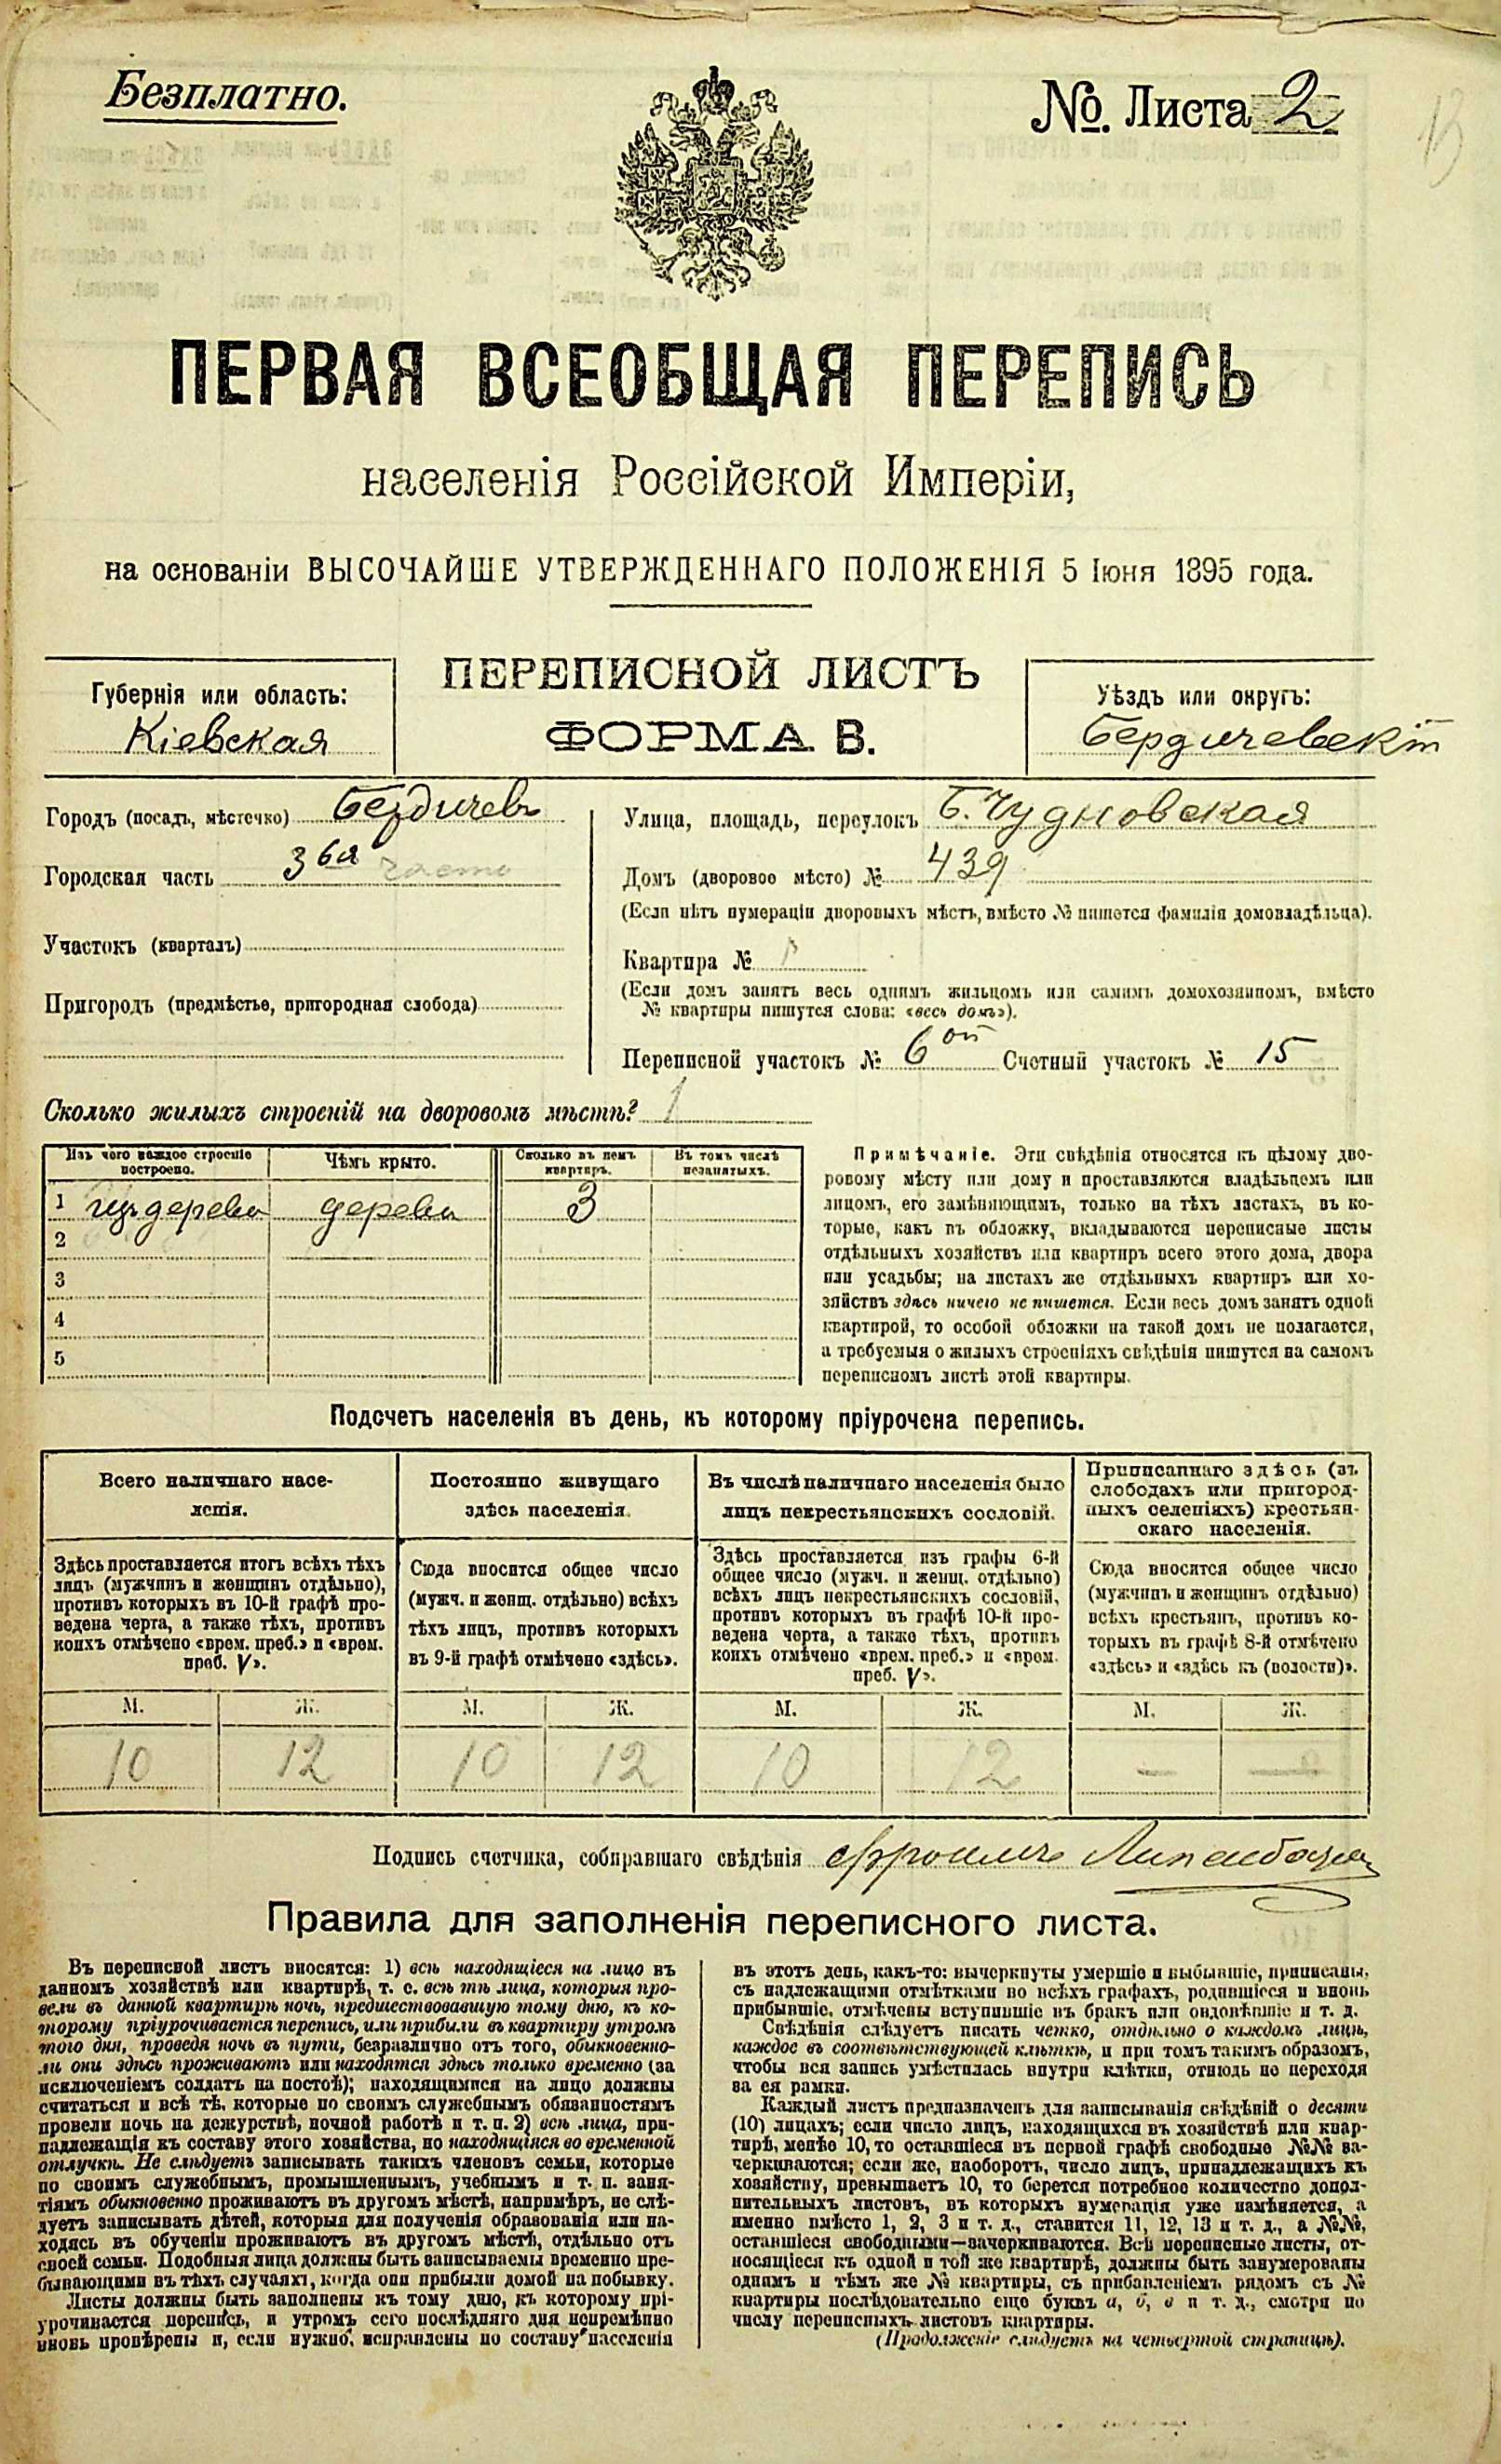 Безплатно.
№. Листа 2
13
ПЕРВАЯ ВСЕОБЩАЯ ПЕРЕПИСЬ
населенія Россійской Имперіи,
на основаніи ВЫСОЧАЙШЕ УТВЕРЖДЕННАГО ПОЛОЖЕНІЯ 5 Іюня 1895 года.
Губернія или область:
Кіевская
ПЕРЕПИСНОЙ ЛИСТЪ
ФОРМА В.
Уѣздъ или округъ:
Бердичевскій
Городъ (посадъ, мѣстечко) Бердичевъ
Городская часть 3ья часть
Участокъ (кварталъ)
Пригородъ (предмѣстье, пригородная слобода)
Улица, площадь, переулокъ Б. Чудновская
Домъ (дворовое мѣсто) № 439
(Если нѣтъ нумераціи дворовыхъ мѣстъ, вмѣсто № пишется фамилія домовладѣльца).
Квартира №
(Если домъ занятъ весь однимъ жильцомъ или самимъ домохозяиномъ, вмѣсто
№ квартиры пишутся слова: «весь домъ»).
Переписной участокъ № 6ой Счетный участокъ № 15
Сколько жилыхъ строеній на дворовомъ мѣстѣ? 1
Изъ чего каждое строеніе построено.
Чѣмъ крыто.
Сколько въ немъ квартиръ.
Въ томъ числѣ незанятыхъ.
1 изъ дерева дерево 3
2
3
4
5
Примѣчаніе. Эти свѣдѣнія относятся къ цѣлому дво-
ровому мѣсту или дому и проставляются владѣльцемъ или
лицомъ, его замѣняющимъ, только на тѣхъ листахъ, въ ко-
торые, какъ въ обложку, вкладываются переписные листы
отдѣльныхъ хозяйствъ или квартиръ всего этого дома, двора
или усадьбы; на листахъ же отдѣльныхъ квартиръ или хо-
зяйствъ здѣсь ничего не пишется. Если весь домъ занятъ одной
квартирой, то особой обложки на такой домъ не полагается,
а требуемыя о жилыхъ строеніяхъ свѣдѣнія пишутся на самомъ
переписномъ листѣ этой квартиры.
Подсчетъ населенія въ день, къ которому пріурочена перепись.
Всего наличнаго насе-
ленія.
Постоянно живущаго
здѣсь населенія.
Въ числѣ наличнаго населенія было
лицъ некрестьянскихъ сословій.
Приписаннаго здѣсь (въ
слободахъ или пригород-
ныхъ селеніяхъ) крестьян-
скаго населенія.
Здѣсь проставляется итогъ всѣхъ тѣхъ
лицъ (мужчинъ и женщинъ отдѣльно),
противъ которыхъ въ 10-й графѣ про-
ведена черта, а также тѣхъ, противъ
коихъ отмѣчено «врем. преб.» и «врем.
преб. V».
Сюда вносится общее число
(мужч. и женщ. отдѣльно) всѣхъ
тѣхъ лицъ, противъ которыхъ
въ 9-й графѣ отмѣчено «здѣсь».
Здѣсь проставляется изъ графы 6-й
общее число (мужч. и женщ. отдѣльно)
всѣхъ лицъ некрестьянскихъ сословій,
противъ которыхъ въ графѣ 10-й про-
ведена черта, а также тѣхъ, противъ
коихъ отмѣчено «врем. преб.» и «врем.
преб. V».
Сюда вносится общее число
(мужчинъ и женщинъ отдѣльно)
всѣхъ крестьянъ, противъ ко-
торыхъ въ графѣ 8-й отмѣчено
«здѣсь» и «здѣсь къ (волости)».
М. Ж. М. Ж. М. Ж. М. Ж.
10 12 10 12 10 12 — —
Подпись счетчика, собиравшаго свѣдѣнія
Правила для заполненія переписного листа.
Въ переписной листъ вносятся: 1) всѣ находящіеся на лицо въ
данномъ хозяйствѣ или квартирѣ, т. е. всѣ тѣ лица, которыя про-
вели въ данной квартирѣ ночь, предшествовавшую тому дню, къ ко-
торому пріурочивается перепись, или прибыли въ квартиру утромъ
того дня, проведя ночь въ пути, безразлично отъ того, обыкновенно-
ли они здѣсь проживаютъ или находятся здѣсь только временно (за
исключеніемъ солдатъ на постоѣ); находящимися на лицо должны
считаться и всѣ тѣ, которые по своимъ служебнымъ обязанностямъ
провели ночь на дежурствѣ, ночной работѣ и т. п. 2) всѣ лица, при-
надлежащія къ составу этого хозяйства, но находящіяся во временной
отлучкѣ. Не слѣдуетъ записывать такихъ членовъ семьи, которые
по своимъ служебнымъ, промышленнымъ, учебнымъ и т. п. заня-
тіямъ обыкновенно проживаютъ въ другомъ мѣстѣ, напримѣръ, не слѣ-
дуетъ записывать дѣтей, которыя для полученія образованія или на-
ходясь въ обученіи проживаютъ въ другомъ мѣстѣ, отдѣльно отъ
своей семьи. Подобныя лица должны быть записываемы временно пре-
бывающими въ тѣхъ случаяхъ, когда они прибыли домой на побывку.
Листы должны быть заполнены къ тому дню, къ которому прі-
урочивается перепись, и утромъ сего послѣдняго дня непремѣнно
вновь провѣрены и, если нужно, исправлены по составу населенія
въ этотъ день, какъ-то: вычеркнуты умершіе и выбывшіе, приписаны,
съ надлежащими отмѣтками во всѣхъ графахъ, родившіеся и вновь
прибывшіе, отмѣчены вступившіе въ бракъ или овдовѣвшіе и т. д.
Свѣдѣнія слѣдуетъ писать четко, отдѣльно о каждомъ лицѣ,
каждое въ соотвѣтствующей клѣткѣ, и при томъ такимъ образомъ,
чтобы вся запись умѣстилась внутри клѣтки, отнюдь не переходя
за ея рамки.
Каждый листъ предназначенъ для записыванія свѣдѣній о десяти
(10) лицахъ; если число лицъ, находящихся въ хозяйствѣ или квар-
тирѣ, менѣе 10, то оставшіеся въ первой графѣ свободные №№ за-
черкиваются; если же, наоборотъ, число лицъ, принадлежащихъ къ
хозяйству, превышаетъ 10, то берется потребное количество допол-
нительныхъ листовъ, въ которыхъ нумерація уже измѣняется, а
именно вмѣсто 1, 2, 3 и т. д., ставится 11, 12, 13 и т. д., а №№,
оставшіеся свободными—зачеркиваются. Всѣ переписные листы, от-
носящіеся къ одной и той же квартирѣ, должны быть занумерованы
однимъ и тѣмъ же № квартиры, съ прибавленіемъ рядомъ съ №
квартиры послѣдовательно еще буквъ а, б, в и т. д., смотря по
числу переписныхъ листовъ квартиры.
(Продолженіе слѣдуетъ на четвертой страницѣ).